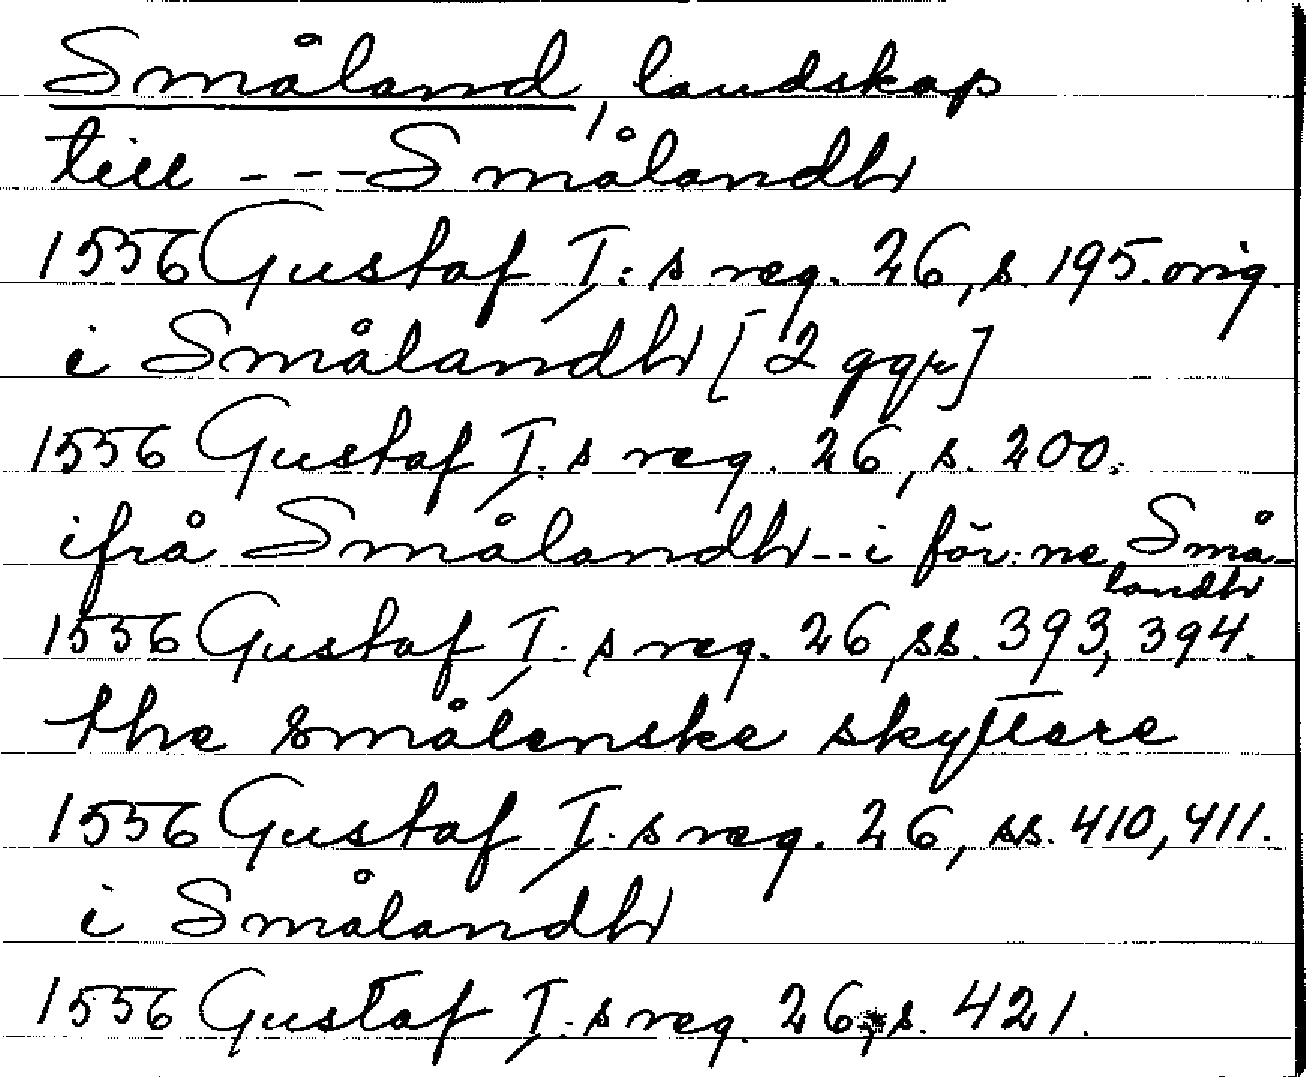 Småland, landskap
till ---Smålandh
1556 Gustaf I:s reg. 26, s. 195. orig.
i Smålandh [2 ggr]
1556 Gustaf I:s reg. 26, s. 200.
ifrå Smålandh -- i för:ne Små-
landh
1556 Gustaf I:s reg. 26, ss. 393, 394.
the smålenske skyttere
1556 Gustaf I:s reg. 26, ss. 410, 411.
i Smålandh
1556 Gustaf I:s reg. 26, s. 421.